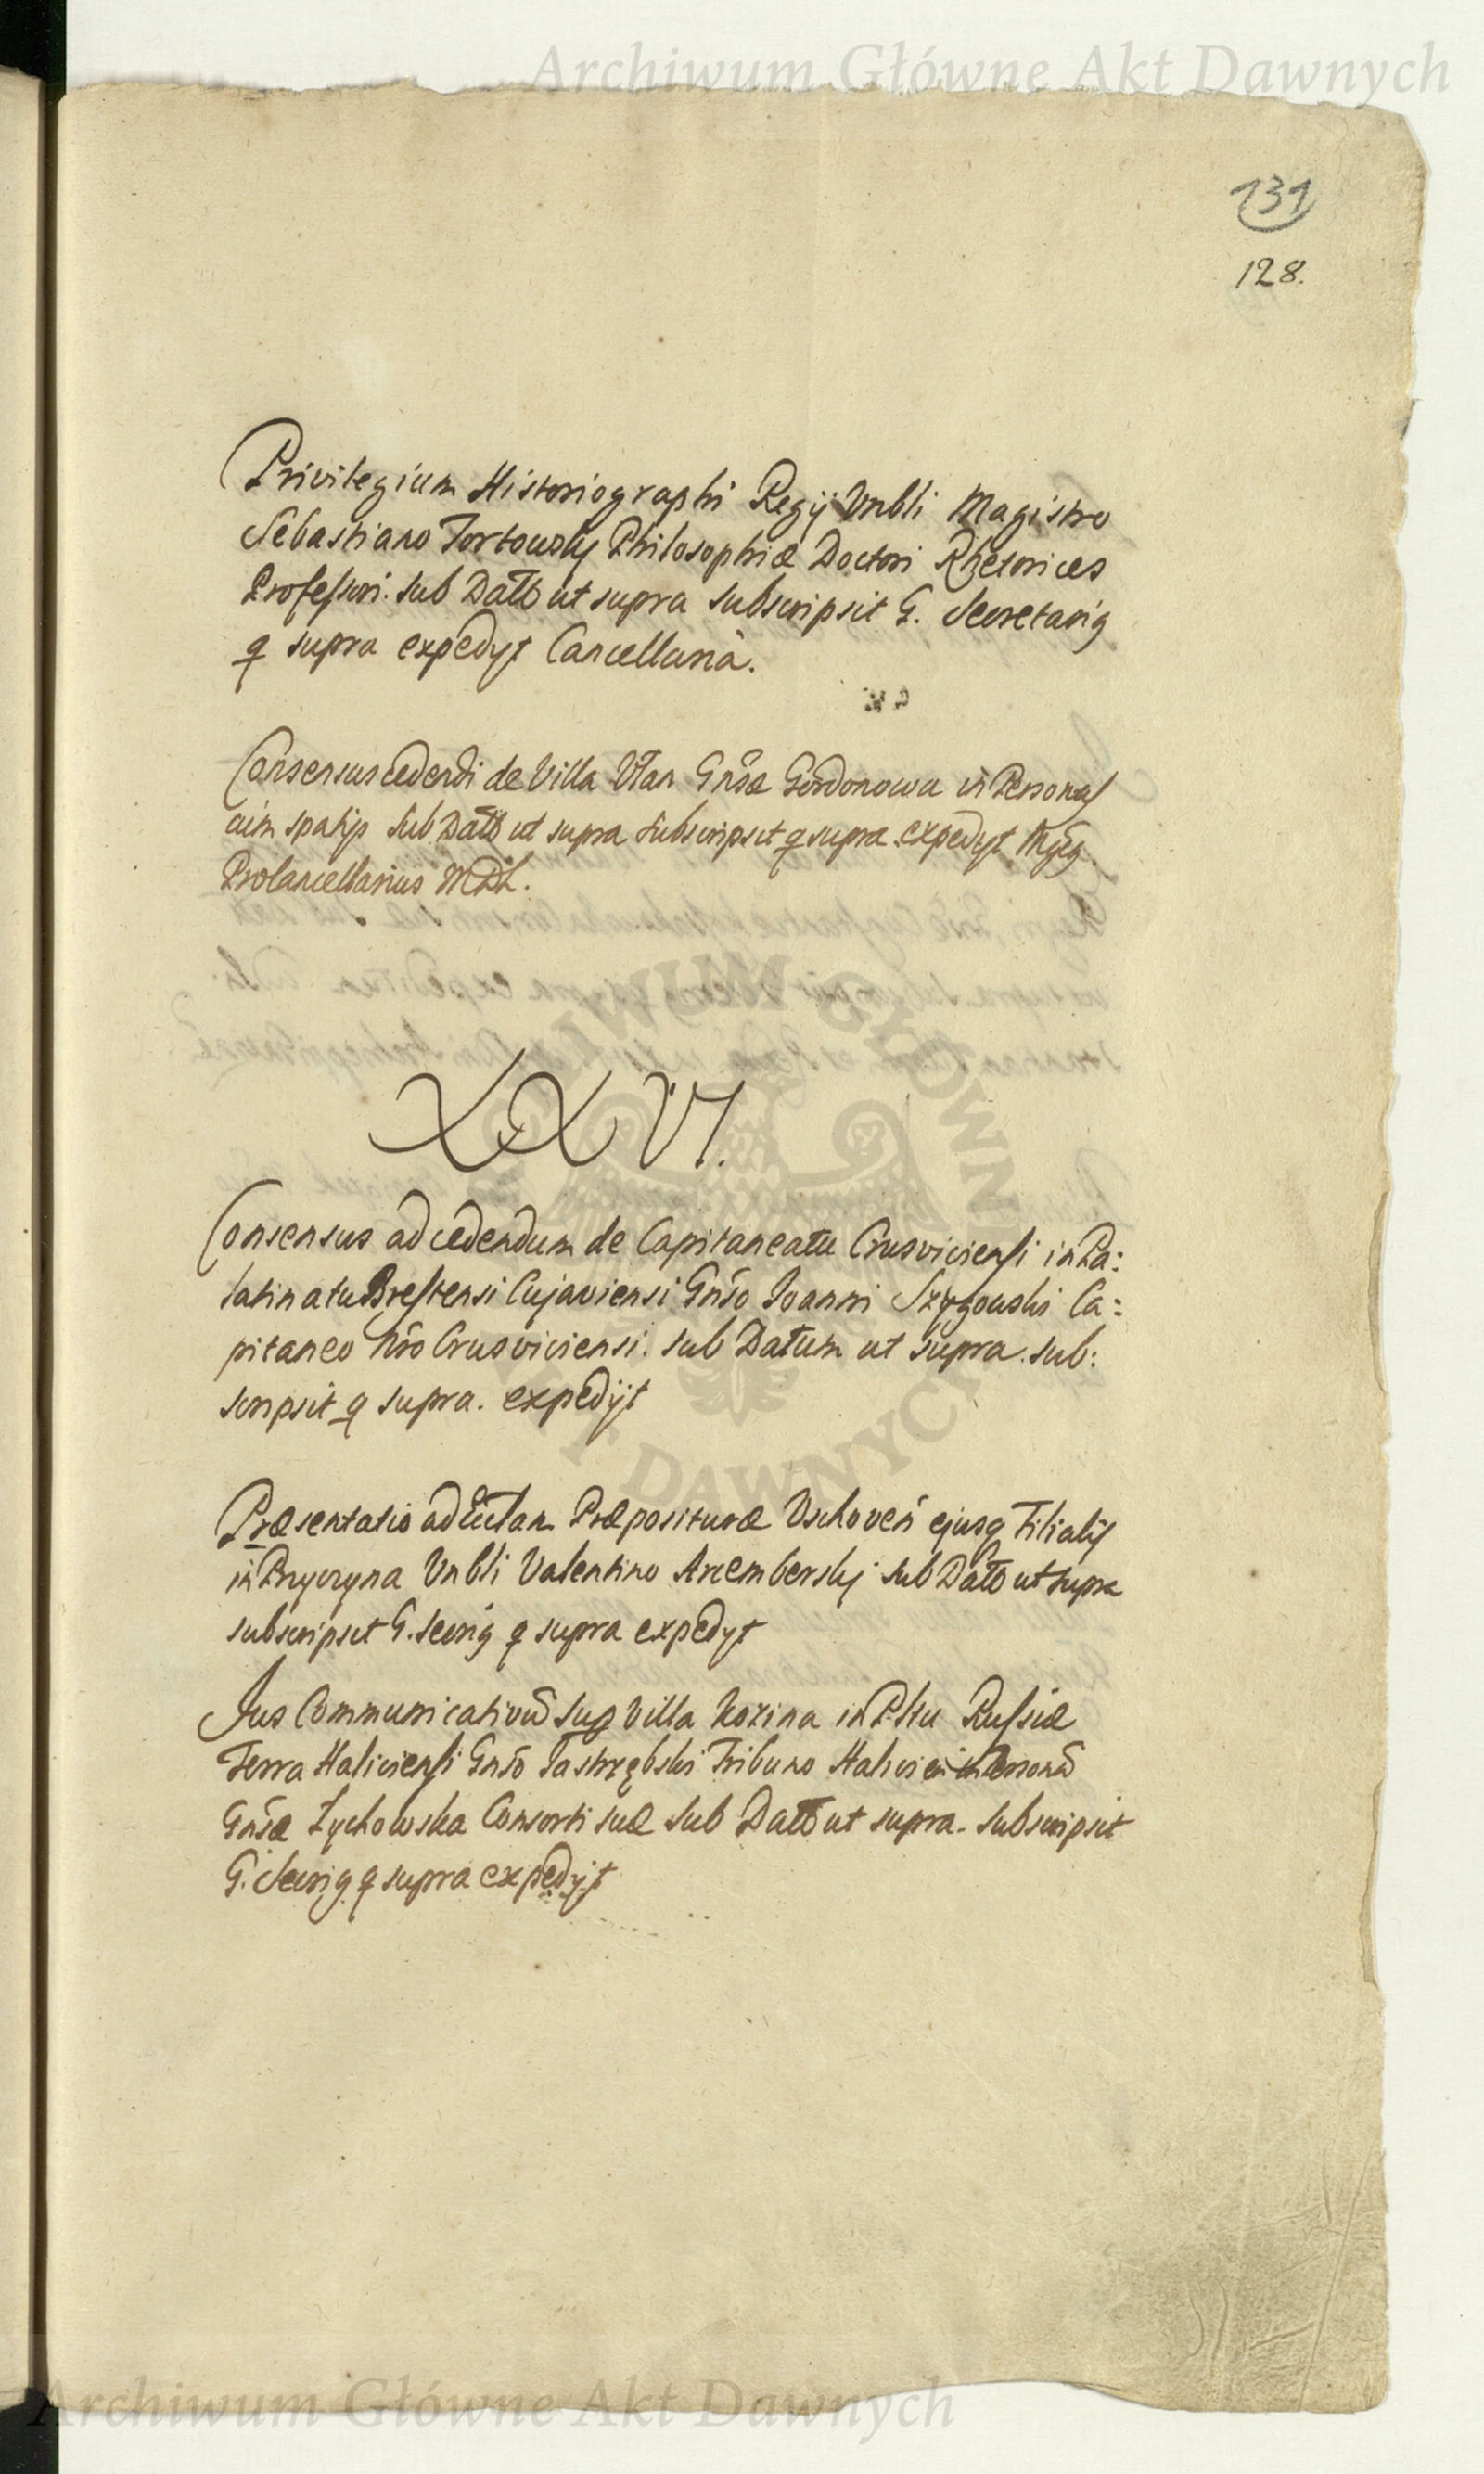 Archiwum Główne Akt Dawnych
131
128.
Privilegium Historiographi Regij Vnbli Magistro
Sebastiano Tortowsky Philosophiæ Doctori Rhetorices
Professori. sub Datto ut supra subscripsit G. Secretarig
q supra expedyt Cancellaria.
Consensus cedendi de Villa Ulan Gnsæ Gordonowa in Personas
cum spatijs sub Datto ut supra subscripsit q supra expedyt
Procancellarius MDL.
XXVI.
Consensus ad cedendum de Capitaneatu Crusviciensi in Pa:
latinatu Brestensi Cujaviensi Gnso Joanni Szygowski Ca:
pitaneo Nro Crusviciensi. sub Datum ut supra. sub:
scripsit q supra. expedijt
Præsentatio ad Ecclam Præposituræ Vschoven ejusq Filialis
in Przyczyna Vnbli Valentino Arcemberskj sub Datto ut supra
subscripsit G. Secrig q supra expedyt
Jus Communicativu Sup Villa Kozina in Pltu Russiæ
Terra Haliciensi Gnso Jastrzębski Tribuno Halicien in Personã
Gnsæ Zychowska Consorti suæ sub Datto ut supra. subscripsit
G. Secrig q supra expedijt
ARCHIWUM GŁÓWNE
AKT DAWNYCH
Archiwum Główne Akt Dawnych